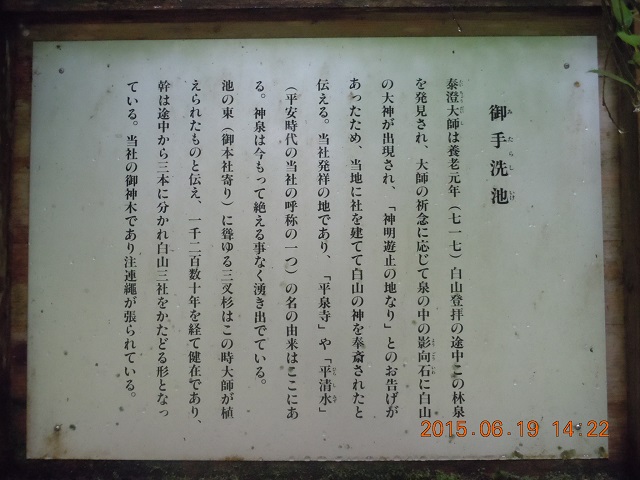 御手洗池
みたらしいけ
泰澄大師は養老元年（七一七）白山登拝の途中この林泉
を発見され、大師の祈念に応じて泉の中の影向石に白山
の大神が出現され、「神明遊止の地なり」とのお告げが
あったため、当地に社を建てて白山の神を奉斎されたと
伝える。当社発祥の地であり、「平泉寺」や「平清水」
（平安時代の当社の呼称の一つ）の名の由来はここにあ
る。神泉は今もって絶える事なく湧き出でている。
池の東（御本社寄り）に聳ゆる三叉杉はこの時大師が植
えられたものと伝え、一千二百数十年を経て健在であり、
幹は途中から三本に分かれ白山三社をかたどる形となっ
ている。当社の御神木であり注連縄が張られている。
2015.06.19 14:22